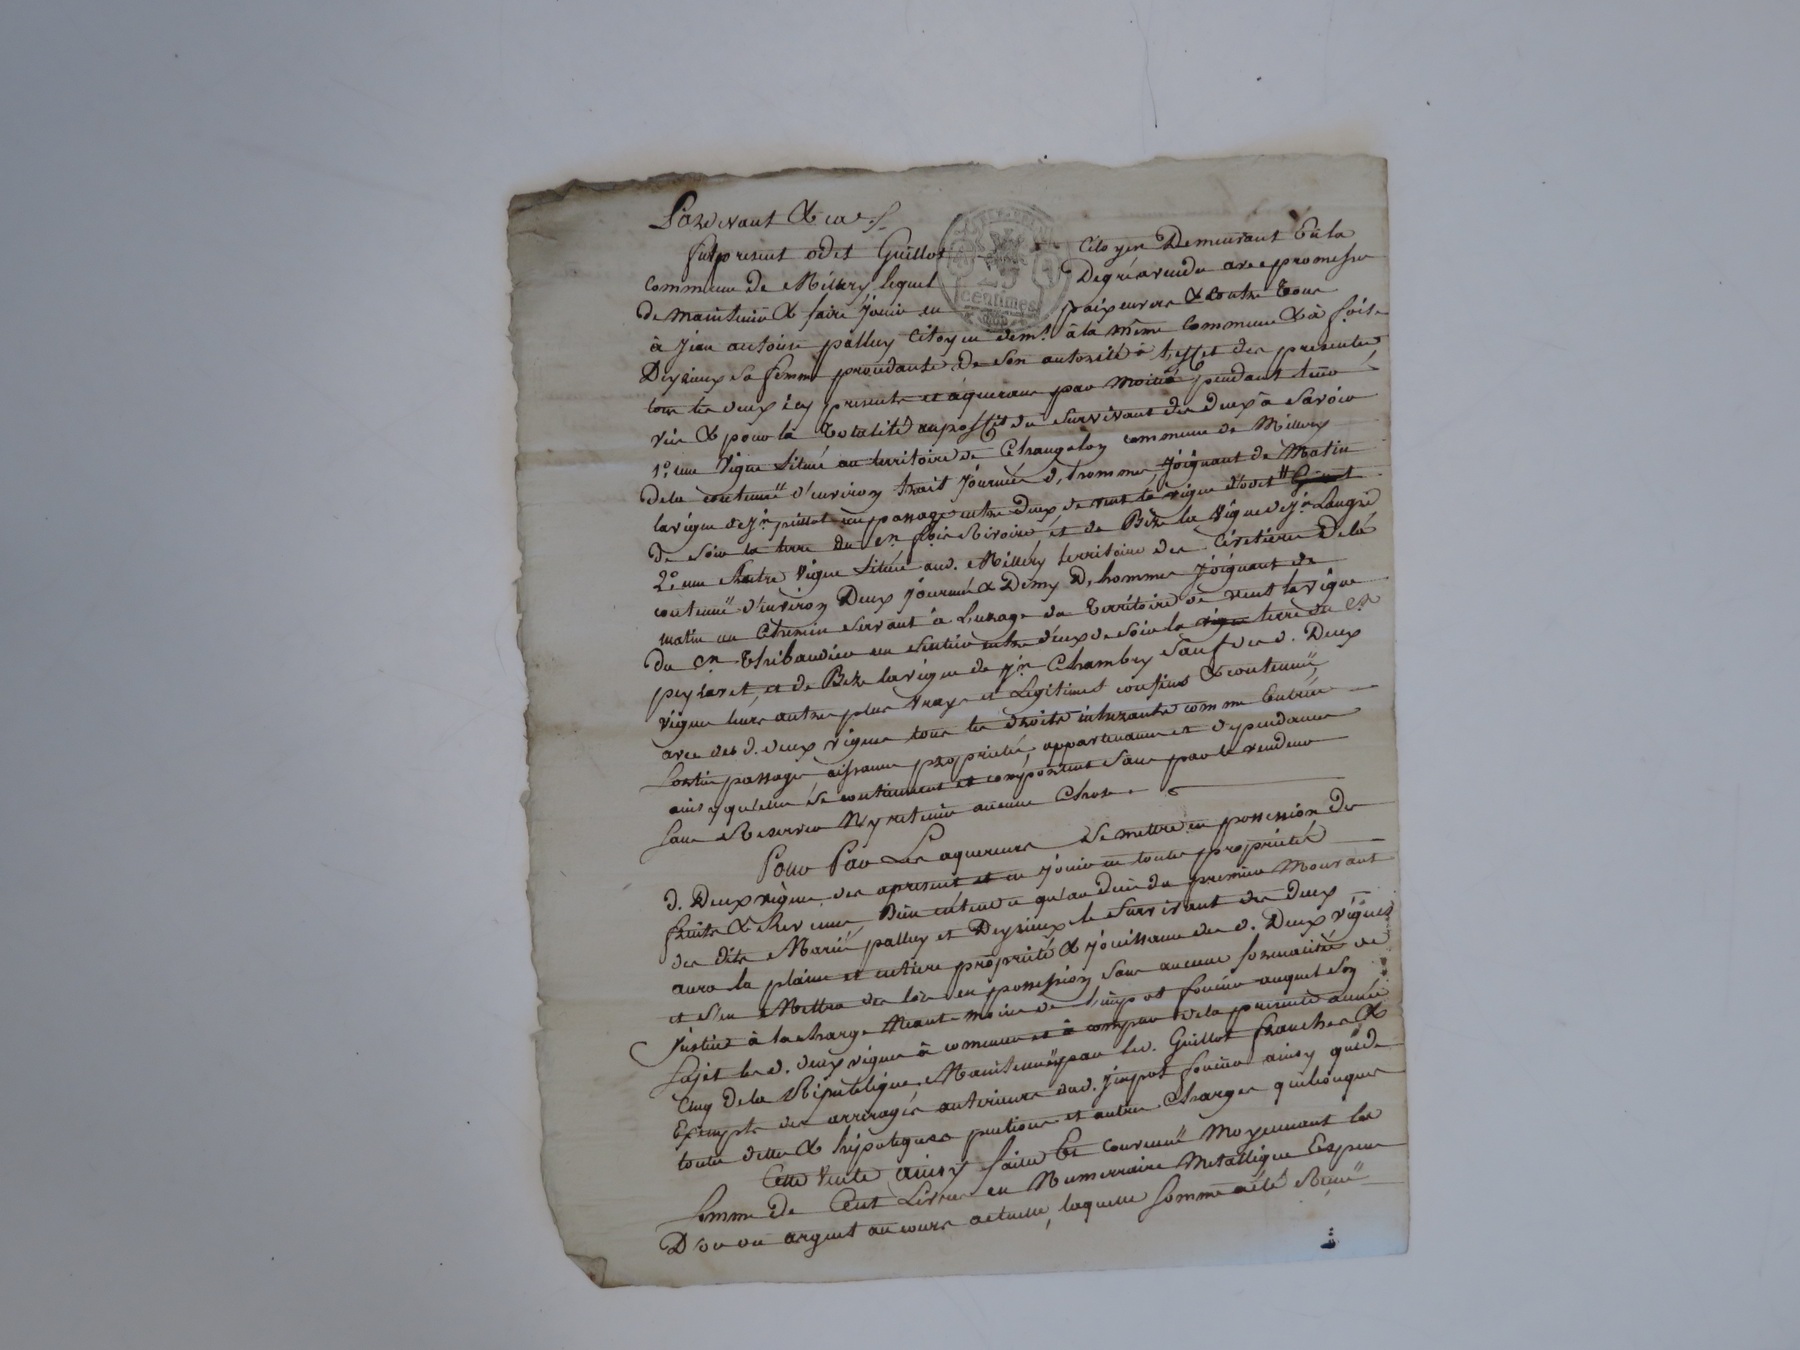 Pardevant & ca
fut present odet Guillot citoyen Demeurant En la
commune de Millery lequel De gré a vendu avec promesse
de maintenir & faire jouir en paix envers & contre tous
25
centimes
à jean antoine palluy Citoyen dem.t à la même Commune & à
Deyrieux sa femme procédante de son autorité à l'effet des presentes
tous les deux icy presents et aquerans par moitié pendant leur
vie & pour la totalité au proffit du survivant des deux à savoir
1.º une vigne située au territoire de Changolon commune de Millery
dela contenue d'environ huit journée d'hommes joignant de Matin
la vigne de j.n un passage entre deux, de vent la vigne d'odet
de soir la terre du c.n et de Bize la vigne de j.n
2.º une autre vigne située aud. Millery territoire des dela
contenue d'environ Deux journée & Demy D'hommes joignant de
matin un Chemin servant à L'usage du Territoire de vent la vigne
du c.n Thibaudier un sentier entre deux de soir la vigne terre du c.n
peylaret, et de Bize la vigne de j.n Chambry sauf des d. Deux
vignes leurs autres plus vrays et Legitimes confins & contenue,
avec des d. deux vignes tous les droits comme Entrée
sortie passage aisance proprieté, appartenances et dependances
ainsy qu'elles se contiennent et comportent sans par le vendeur
sans Reserver Ny retenir aucune Chose
Pour Par Les aquereurs se mettre en possession des
d. Deux vignes des apresent et en jouir en toute propriété
fruits & Revenus, Bien entendu qu'au decès du premier Mourant
des dits Mariés palluy et Deyrieux le survivant des deux
aura la plaine et entiere propriété & jouissance des d. Deux vignes
et s'en Mettra des lors en possession sans aucune formalités de
justice à la charge Neant-moins de l'impot foncier auquel son
sujet les d. deux vignes à commencer et à compter dela presente année
Cinq de la Republique, Maintenues par led. Guillot franches &
Exempts des arrerages anterieurs dud. jmpot foncier ainsy que de
toutes dettes & hipoteques pentions et autres Charges quelconques
Cette Vente ainsy faite Et convenue Moyennant la
somme de Cent Livres en Numerraire Metallique Especes
D'or ou argent au cours actuelle, laquelle somme a été Reçue